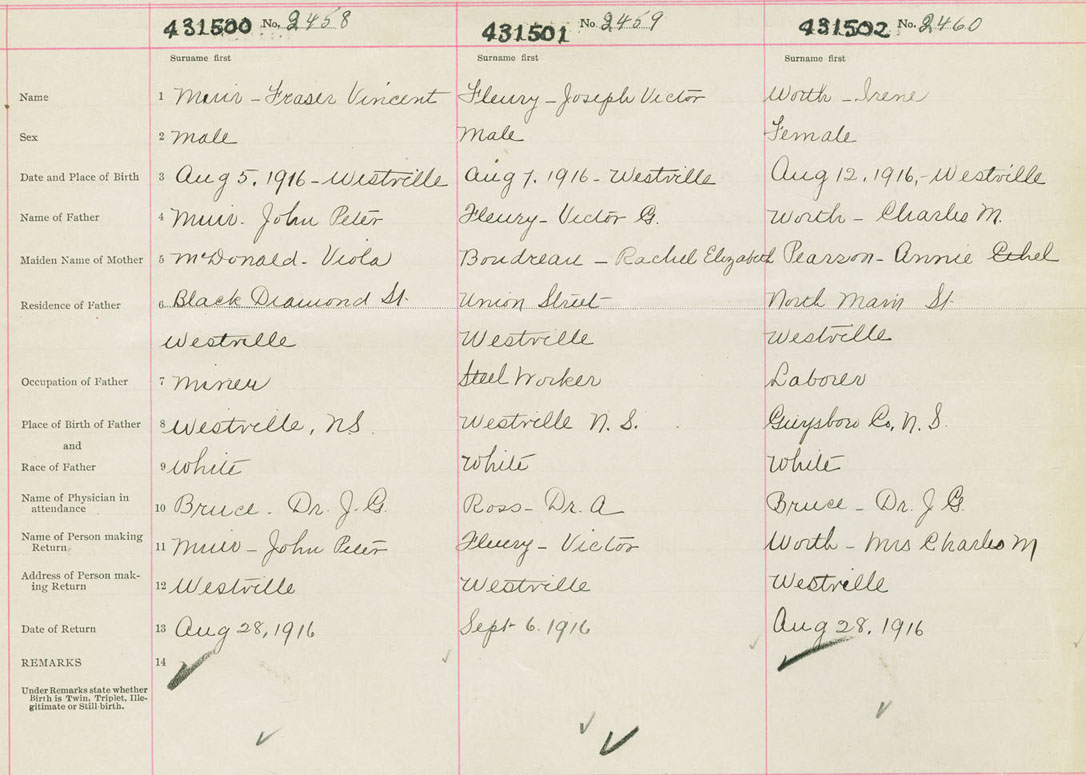 431500 No. 2458 431501 No. 2459 431502 No. 2460
Surname first Surname first Surname first
Name 1 Muir - Fraser Vincent Fleury - Joseph Victor Worth - Irene
Sex 2 Male Male Female
Date and Place of Birth 3 Aug 5, 1916 - Westville Aug 7, 1916 - Westville Aug 12, 1916, - Westville
Name of Father 4 Muir - John Peter Fleury - Victor G. Worth - Charles M.
Maiden Name of Mother 5 McDonald - Viola Boudreau - Rachel Elizabeth Pearson - Annie Ethel
Residence of Father 6 Black Diamond St. Union Street North Main St
Westville Westville Westville
Occupation of Father 7 Miner Steel Worker Laborer
Place of Birth of Father 8 Westville, NS. Westville N. S. Guysboro Co, N. S.
and
Race of Father 9 White White White
Name of Physician in
attendance 10 Bruce - Dr. J. G. Ross - Dr. A Bruce - Dr. J G.
Name of Person making
Return 11 Muir - John Peter Fleury - Victor Worth - Mrs Charles M
Address of Person mak-
ing Return 12 Westville Westville Westville
Date of Return 13 Aug 28, 1916 Sept 6. 1916 Aug 28, 1916
REMARKS 14
Under Remarks state whether
Birth is Twin, Triplet, Ille-
gitimate or Still-birth.